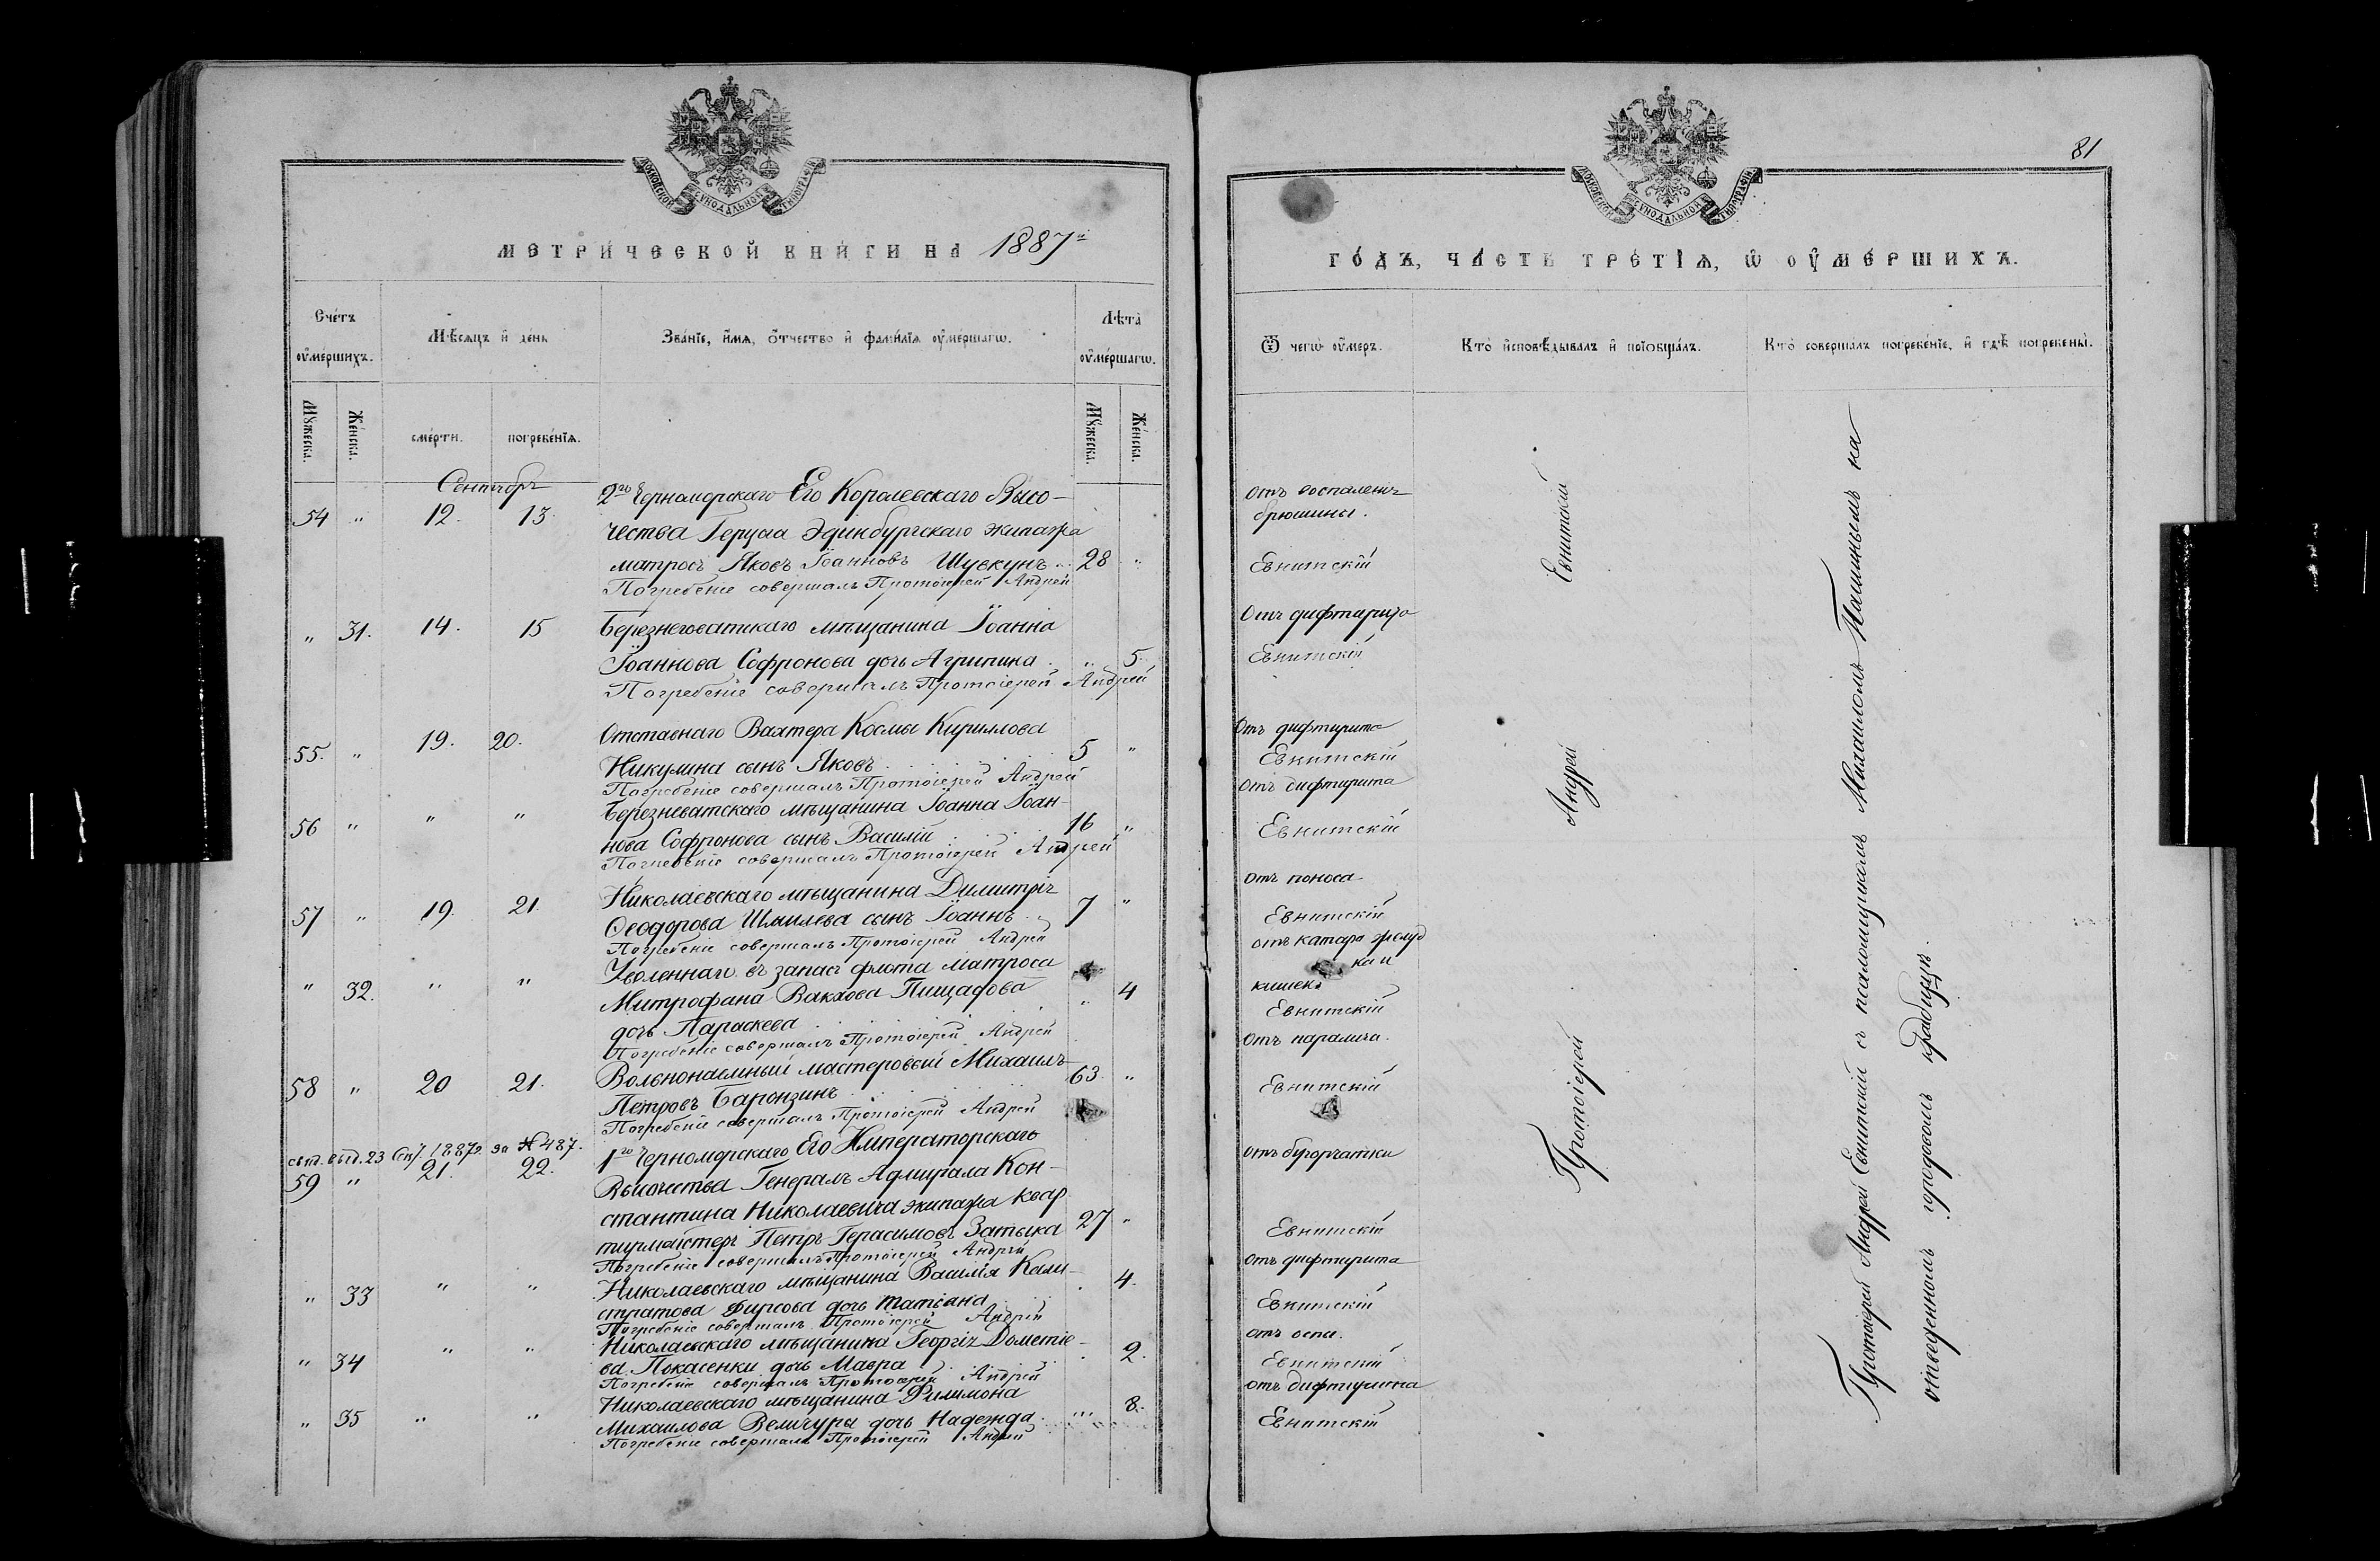 МОСКОВСКОЙ СѴНОДАЛЬНОЙ ТИПОГРАФІИ
МЕТРИ́ЧЕСКОЙ КНИ́ГИ НА 1887й
Сче́тъ ᲂу҆ме́ршихъ.
Мѣ́сяцъ и҆ де́нь
Зва́нїе, и҆́мѧ, ѻ҆́тчество и҆ фами́лїѧ ᲂу҆ме́ршагѡ.
Лѣ́та ᲂу҆ме́ршагѡ.
Мꙋ́жеска.
Же́нска.
сме́рти.
погребе́нїѧ.
Мꙋ́жеска.
Же́нска.
Сентябрь
54 " 12. 13. 2го Черноморскаго Его Королевскаго Высо-
чества Герцога Эдинбургскаго экипажа
матросъ Яковъ Іоанновъ Шувкунъ 28 "
Погребеніе совершалъ Протоіерей Андрей
" 31. 14. 15 Березнеговатскаго мѣщанина Іоанна
Іоаннова Софронова дочь Агрипина " 5.
Погребеніе совершалъ Протоіерей Андрей
55. " 19. 20. Отставнаго Вахтера Космы Кириллова
Никулина сынъ Яковъ 5 "
Погребеніе совершалъ Протоіерей Андрей
56 " " " Березневатскаго мѣщанина Іоанна Іоан-
нова Софронова сынъ Василій 16 "
Погребеніе совершалъ Протоіерей Андрей
57 " 19. 21. Николаевскаго мѣщанина Димитрія
Ѳеодорова Шмилева сынъ Іоаннъ 7 "
Погребеніе совершалъ Протоіерей Андрей
" 32. " " Уволеннаго въ запасъ флота матроса
Митрофана Вакхова Пищафова " 4
дочь Параскева
Погребеніе совершалъ Протоіерей Андрей
58 " 20 21. Вольнонаемный мастеровой Михаилъ
Петровъ Баронзинъ 63. "
Погребеніе совершалъ Протоіерей Андрей
свид. выд. 23 1887г. за № 487.
59 " 21. 22. 1го Черноморскаго Его Императорскаго
Высочества Генералъ Адмирала Кон-
стантина Николаевича экипажа квар
тирмейстеръ Петръ Герасимовъ Затыка 27 "
Погребеніе совершалъ Протоіерей Андрей
" 33 " " Николаевскаго мѣщанина Василія Кали-
стратова Фирсова дочь Татіана 4.
Погребеніе совершалъ Протоіерей Андрей
" 34 " " Николаевскаго мѣщанина Георгія Дометіе-
ва Покасенки дочь Мавра 2.
Погребеніе совершалъ Протоіерей Андрей
" 35 " " Николаевскаго мѣщанина Филимона
Михаилова Величуры дочь Надежда " 8.
Погребеніе совершалъ Протоіерей Андрей
81
МОСКОВСКОЙ СѴНОДАЛЬНОЙ ТИПОГРАФІИ
ГО́ДЪ, ЧА́СТЬ ТРЕ́ТІѦ, Ѡ҆ ОУ҆МЕ́РШИХЪ.
Ѿ чегѡ̀ ᲂу҆́меръ.
Кто̀ и҆сповѣ́дывалъ и҆ прїѻбща́лъ.
Кто̀ соверша́лъ погребе́нїе, и҆ гдѣ̀ погребены̀.
отъ воспаленія
брюшины.
Евнитскій
Отъ дифтирита
Евнитскій
Отъ дифтирита
Евнитскій
Отъ дифтирита
Евнитскій
отъ поноса
Евнитскій
отъ катара желуд
ка и
кишекъ
Евнитскій
Отъ паралича.
Евнитскій
отъ бугорчатки
Евнитскій
отъ дифтирита
Евнитскій
отъ оспы.
Евнитскій
отъ дифтирита
Евнитскій
Протоіерей Андрей Евнитскій
Протоіерей Андрей Евнитскій съ псаломщикомъ Михаиломъ Пашинымъ на
отведенномъ городовомъ кладбищѣ.